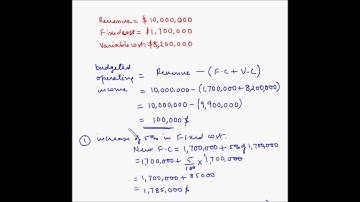 Revenue = $10,000,000
Fixed cost = $1,700,000
Variable cost = $8,200,000
budgeted operating income = Revenue - (F.C + V.C)
= 10,000,000 - (1,700,000 + 8,200,000)
= 10,000,000 - (9,900,000)
= 100,000 $
① increase of 5% in Fixed cost.
New F.C = 1,700,000 + 5% of 1,700,000
= 1,700,000 + 5/100 × 1,700,000
= 1,700,000 + 85000
= 1,785,000 $